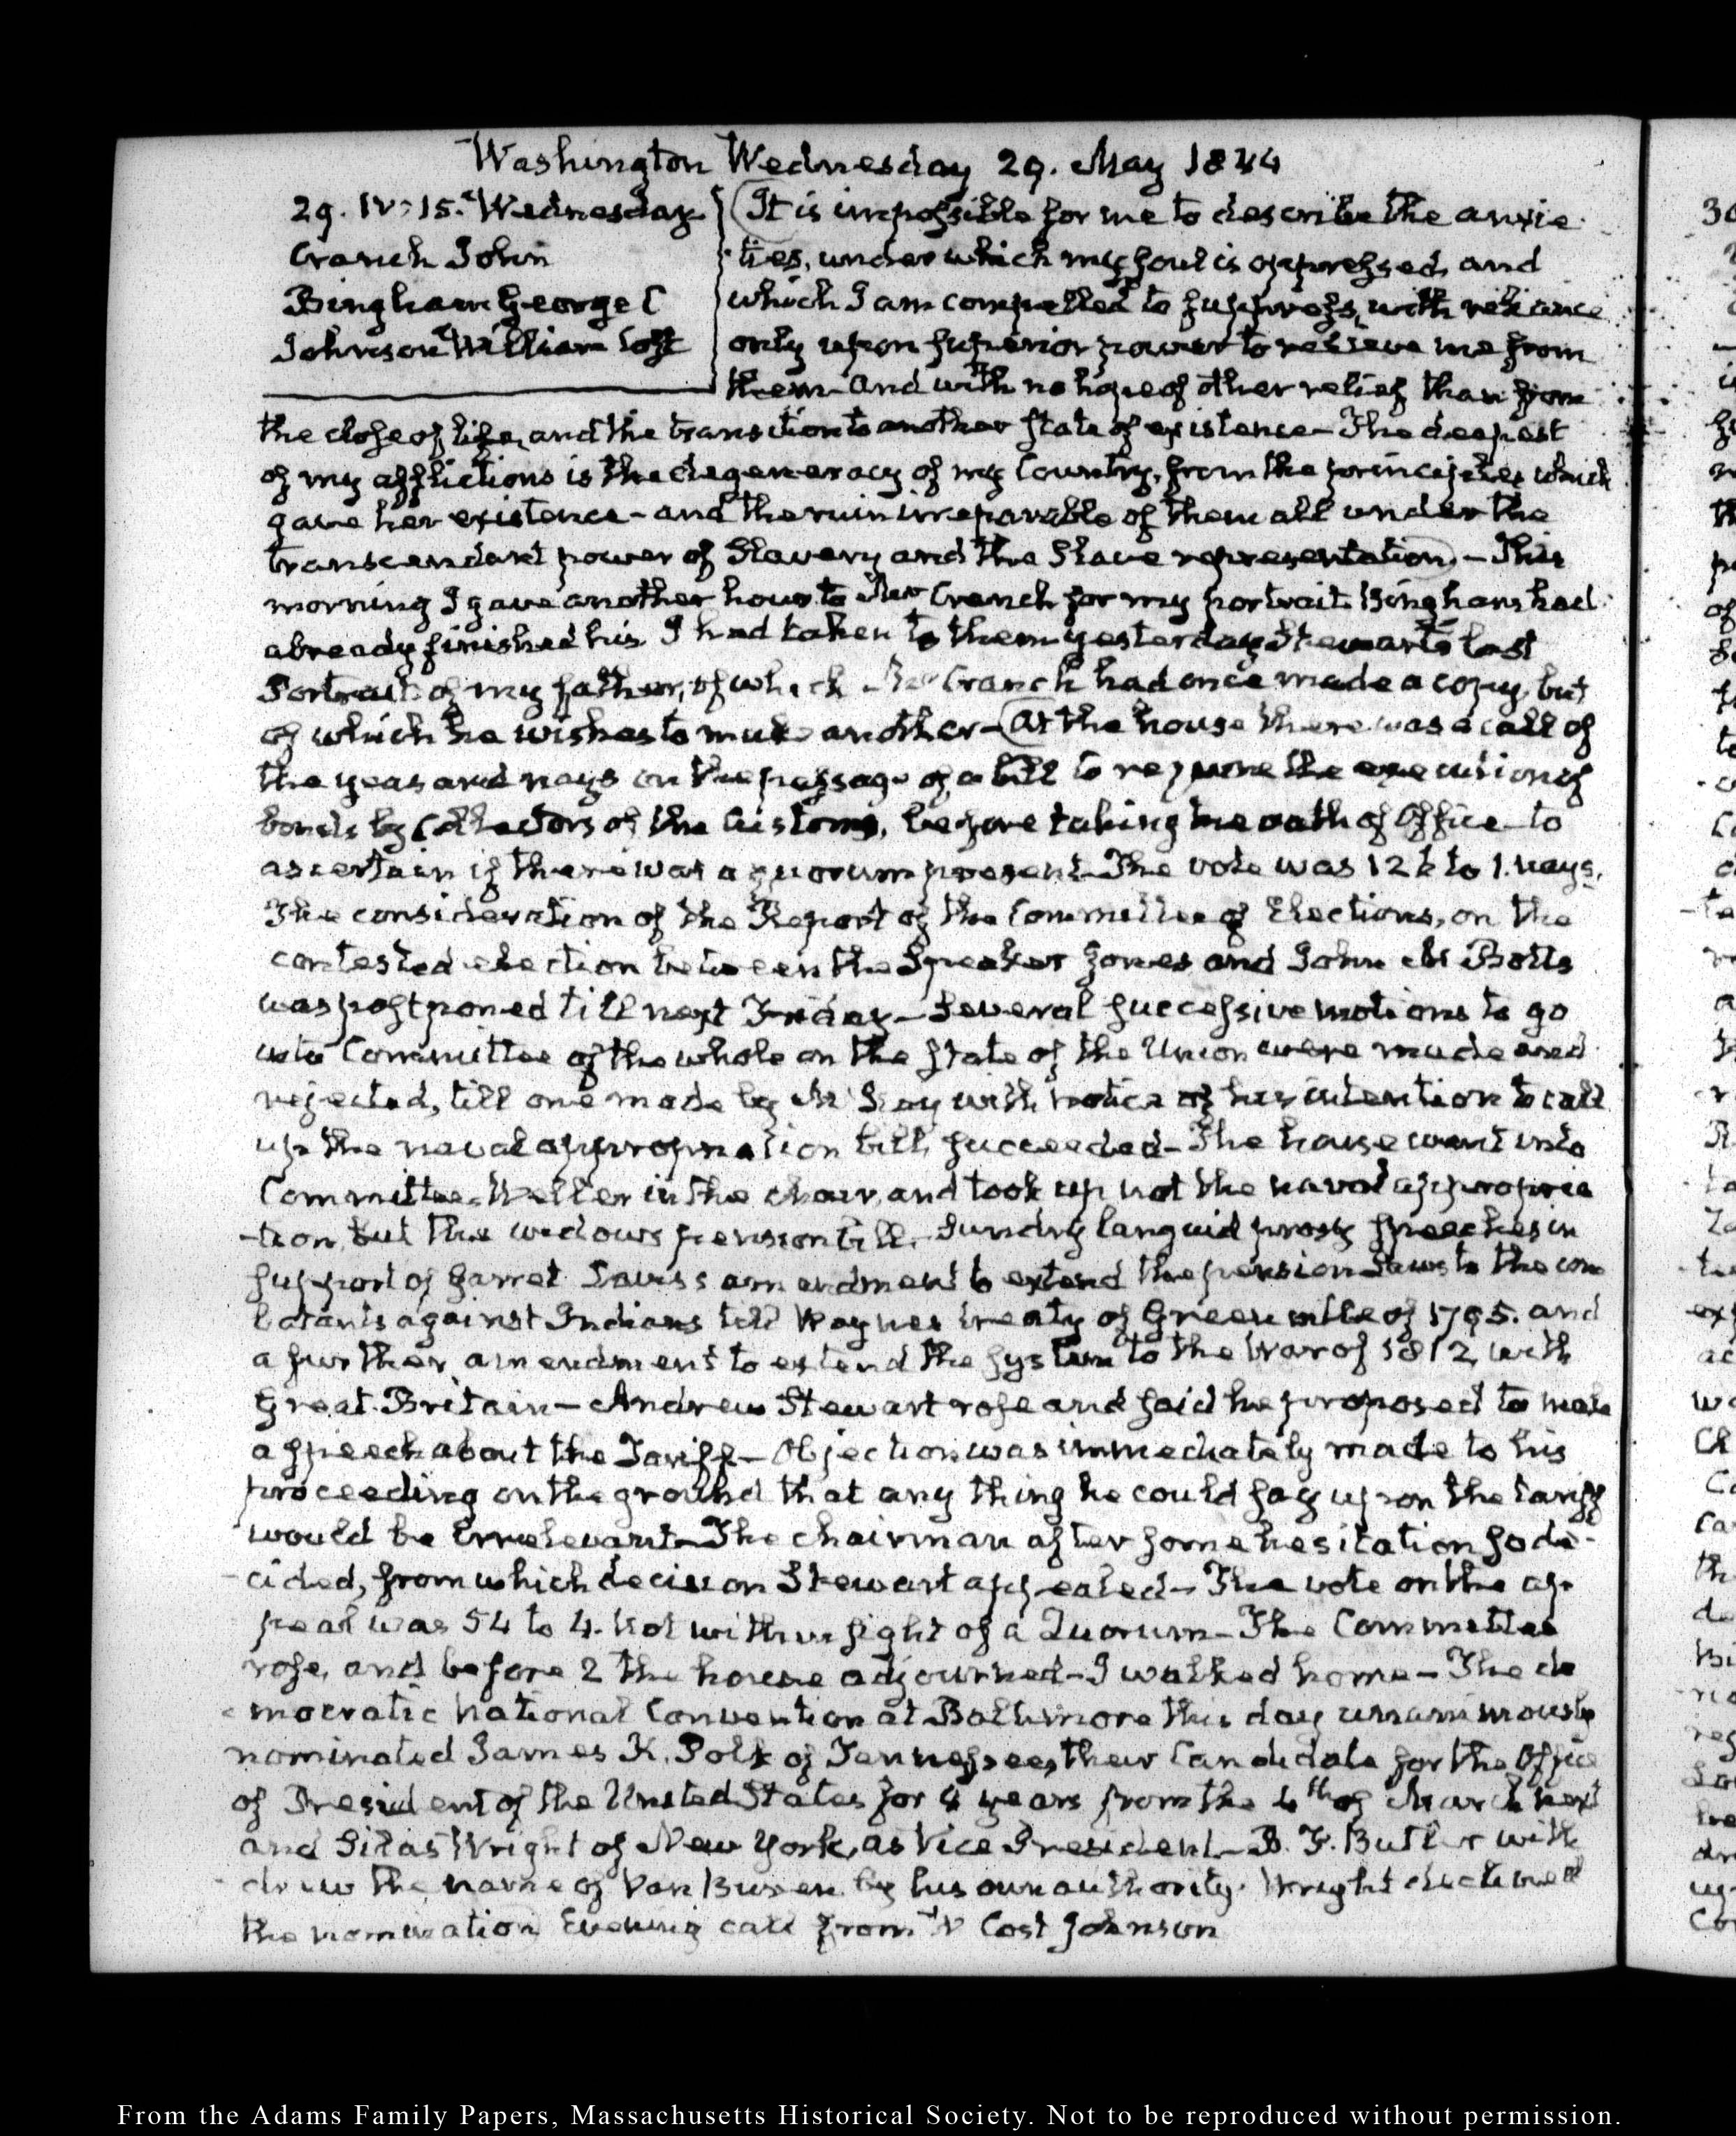 Washington Wednesday 29. May 1844
29. IV: 15. Wednesday
Cranch John
Bingham George C
Johnson William Cost
It is impossible for me to describe the anxie
ties, under which my soul is oppressed, and
which I am compelled to suppress, with reliance
only upon superior power to relieve me from
them and with no hope of other relief than from
the close of life, and the transition to another state of existence— The deepest
of my afflictions is the degeneracy of my Country, from the principles which
gave her existence— and the ruin irreparable of them all under the
transcendant power of Slavery and the Slave representation.— This
morning I gave another hour to Mr Cranch for my portrait. Bingham had
already finished his. I had taken to them yesterday Stewart's last
Portrait of my father, of which Mr Cranch had once made a copy, but
of which he wishes to make another— At the house there was a call of
the yeas and nays on the passage of a bill to require the execution of
bonds by Collectors of the Customs, before taking the oath of Office— to
ascertain if there was a quorum present— The vote was to 1. nays.
The consideration of the Report of the Committee of Elections, on the
contested election between the Speaker Jones and John M Botts
was postponed till next Friday— Several successive motions to go
into Committee of the whole on the state of the Union were made and
rejected, till one made by Mr with notice of his intention to call
up the naval appropriation bill, succeeded— The house went into
Committee, Weller in the chair, and took up not the naval appropria
-tion, but the widows pension bill.— Sundry languid prosy speeches in
support of Garret Davis's amendment to extend the pension Laws to the com
batants against Indians till Waynes treaty of Greenville of 1795. and
a further amendment to extend the system to the War of 1812, with
Great-Britain— Andrew Stewart rose and said he proposed to make
a speech about the Tariff— Objection was immediately made to his
proceeding on the ground that any thing he could say upon the tariff
would be irrelevant— The chairman after some hesitation so de-
-cided, from which decision Stewart appealed— The vote on the ap-
peal was 54 to 4. Not within sight of a Quorum— The Committee
rose, and before 2 the house adjourned— I walked home— The de
mocratic National Convention at Baltimore this day unanimously
nominated James K. Polk of Tennessee, their Candidate for the Office
of President of the United States for 4 years from the 4th of March next
and Silas Wright of New York, as Vice President— B. F. Butler with
-drew the name of Van Buren by his own authority. Wright declined
the nomination Evening call from W Cost Johnson
From the Adams Family Papers, Massachusetts Historical Society. Not to be reproduced without permission.